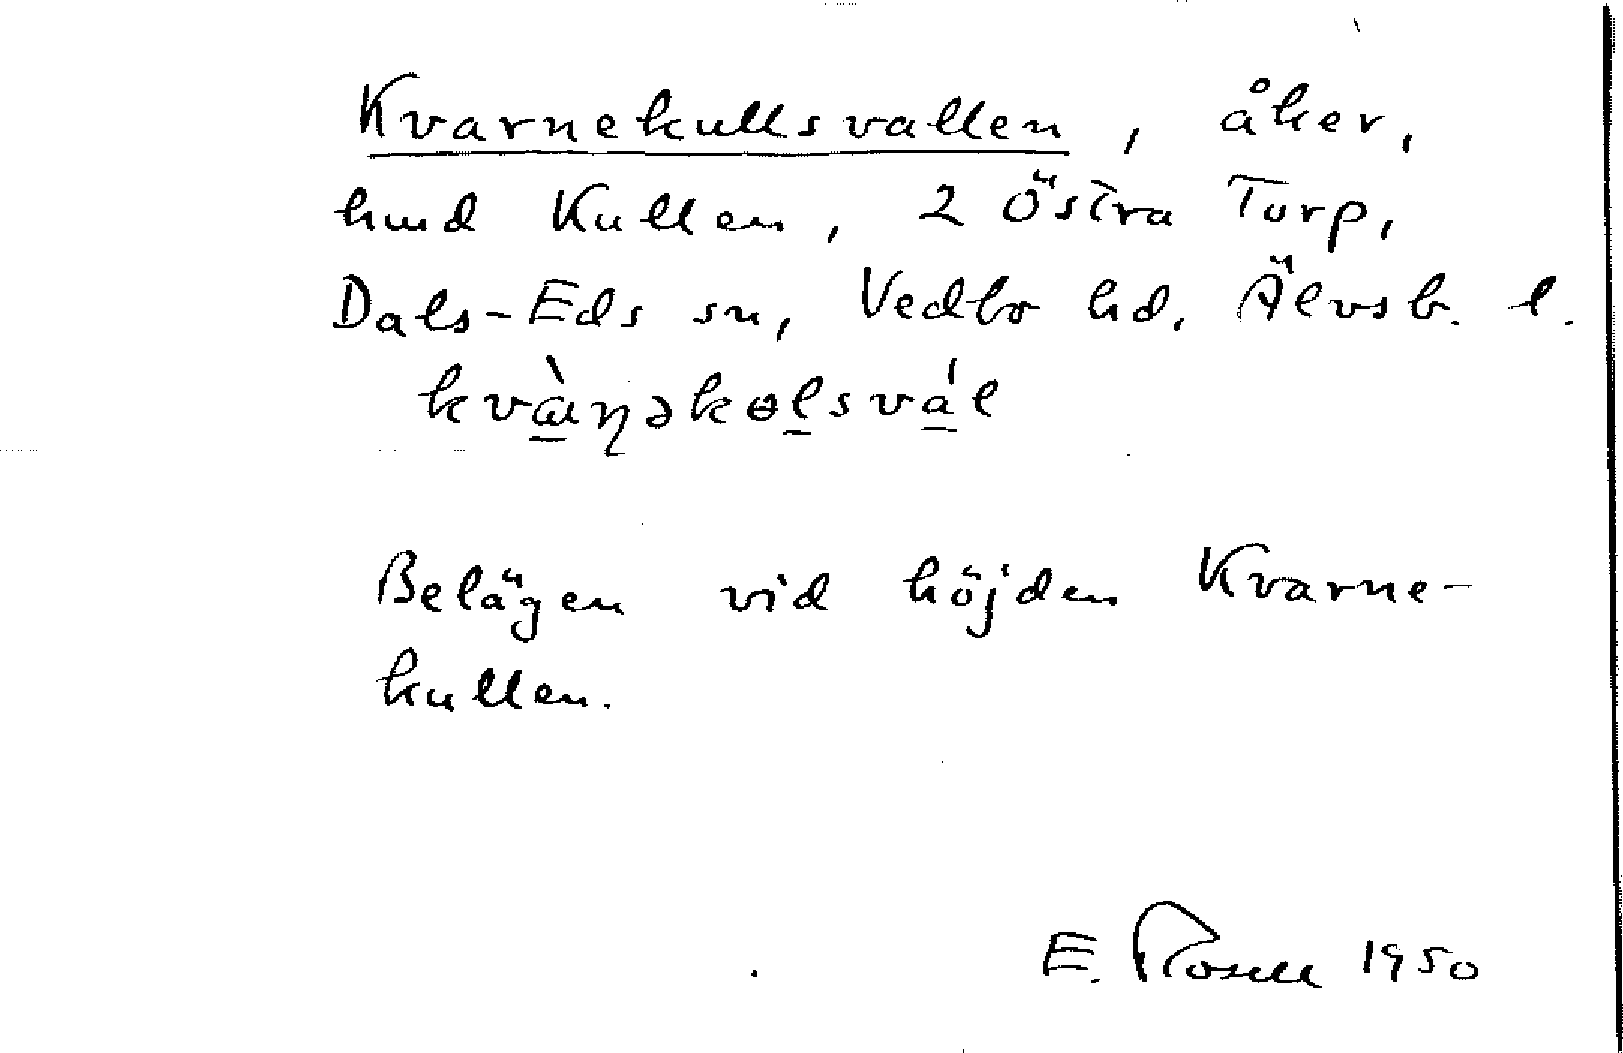 Kvarnekullsvallen, åker,
hmd Kullen, 2 Östra Torp,
Dals-Eds sn, Vedbo hd. Älvsb. l.
kvàɳəkɵlsvál
Belägen vid höjden Kvarne-
kullen.
E. Rosell 1950